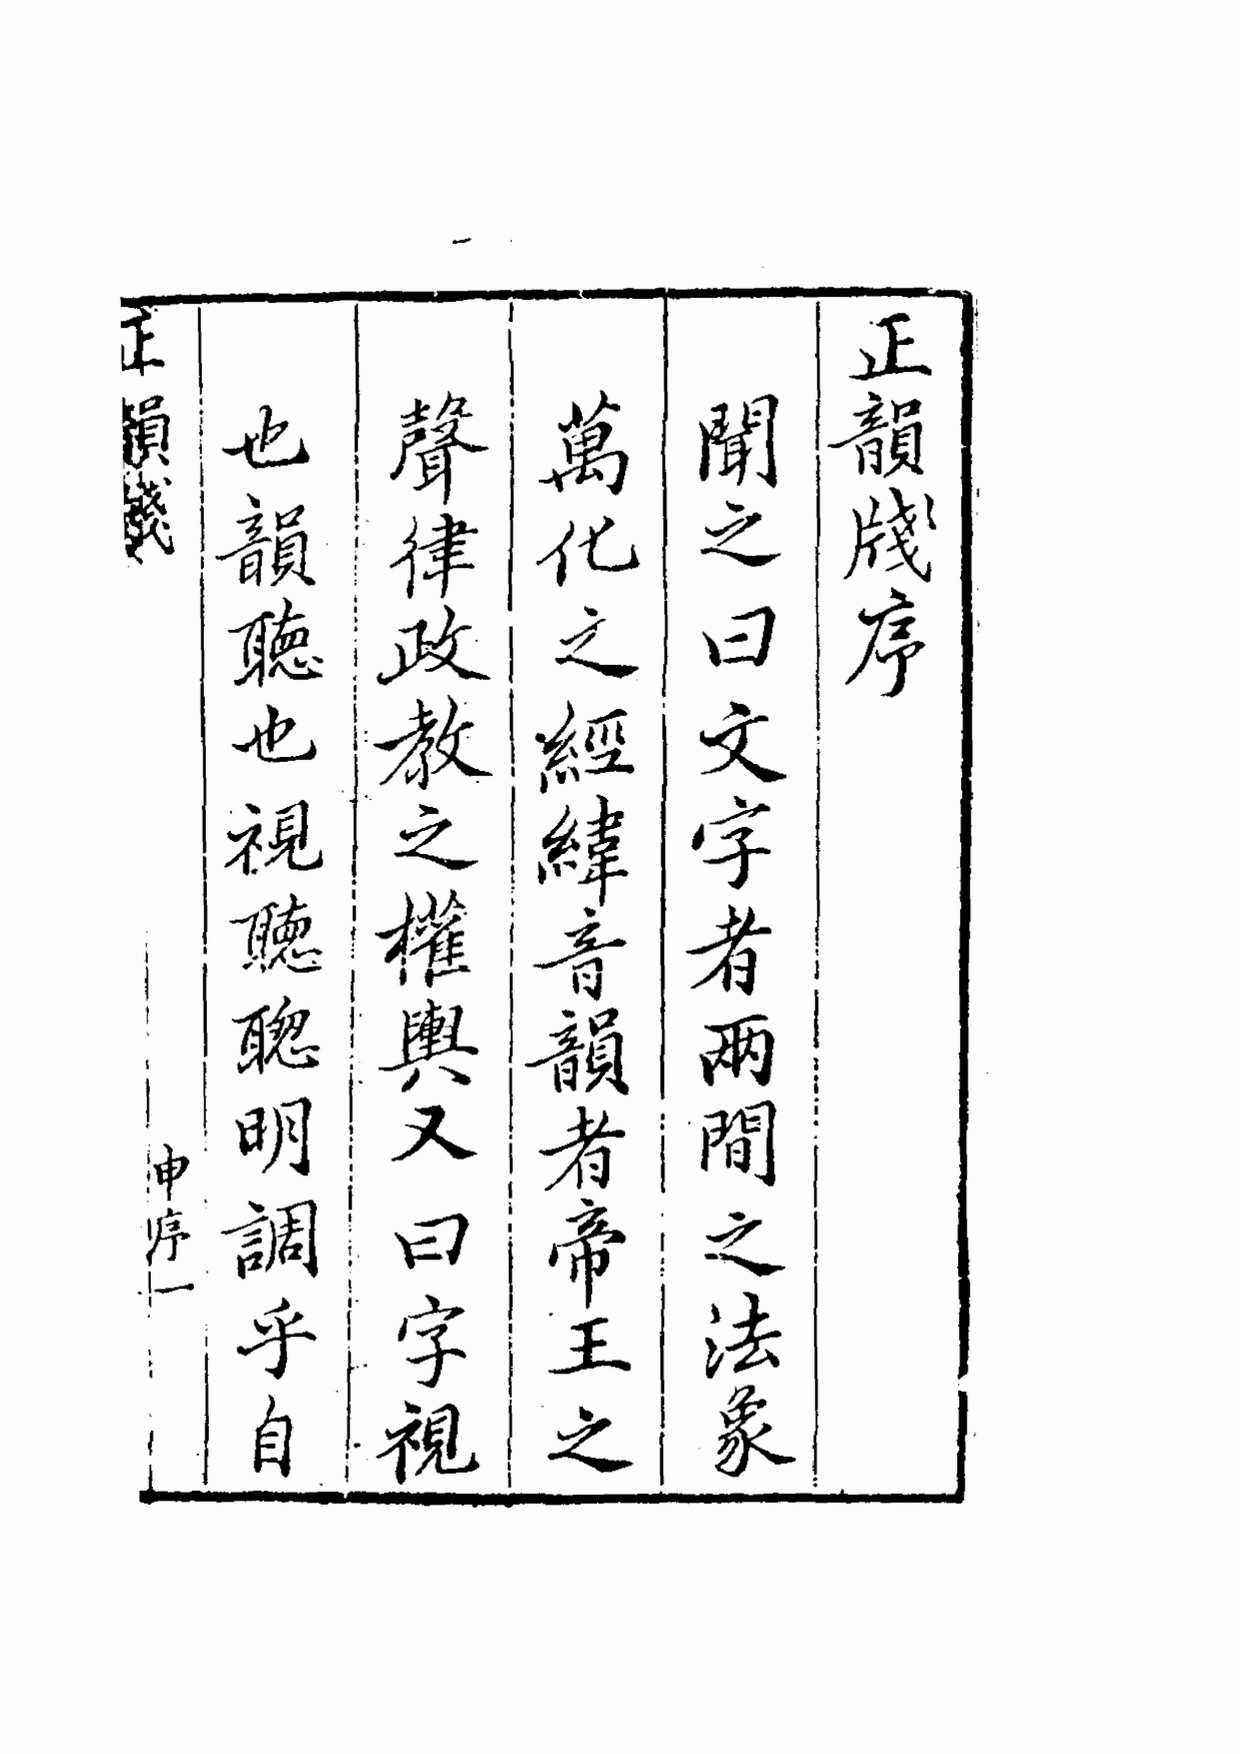 正韻牋序
聞之曰文字者兩間之法象
萬化之經緯音韻者帝王之
聲律政教之權輿又曰字視
也韻聽也視聽聰明調乎自
正韻牋
申序一